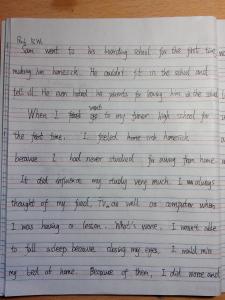 Sam went to his boarding school for the first time
making him homesick. He couldn't fit in the school and
fell ill. He even hated his parents for leaving him in the school
When I went to my junior high school for
the first time, I feeled home sick homesick
because I had never studied far away from home
It did influence my study very much. I was always
thought of my food, TV as well as computer when
I was having a lesson. What's worse, I wasn't able
to fall asleep because closing my eyes, I would miss
my bed at home. Because of them, I did worse and